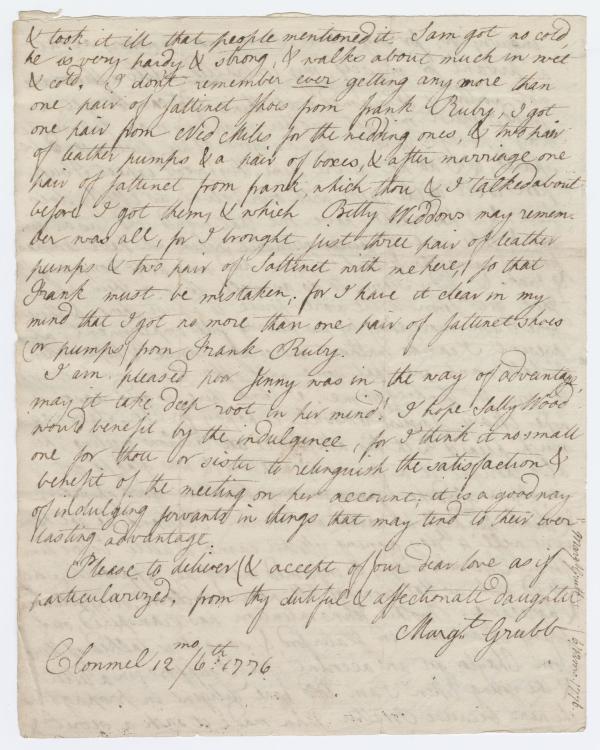 & took it ill that people mentioned it, Sam got no cold,
he is very hardy & strong, & walks about much in wet
& cold. I don't remember ever getting any more than
one pair of Sattinet shoes from frank Ruby, I got
one pair from Ned Miles for the wedding ones, & two pair
of leather pumps & a pair of boxes, & after marriage one
pair of Sattinet from frank, which thou & I talked about
before I got them, & which Betty Widdons may remem-
ber was all, for I brought just three pair of leather
pumps & two pair of Sattinet with me here, so that
Frank must be mistaken; for I have it clear in my
mind that I got no more than one pair of Sattinet shoes
(or pumps) from Frank Ruby.
I am pleased poor Jenny was in the way of advantage,
may it take deep root in her mind! I hope Sally Wood
would benefit by the indulgence, for I think it no small
one for thou or sister to relinquish the satisfaction &
benefit of the meeting on her account; it is a good way
of indulging servants in things that may tend to their ever-
lasting advantage.
Please to deliver (& accept of) our dear love as if
particularized, from thy dutiful & affectionate daughter
Margt. Grubb
Clonmel 12mo/6th: 1776